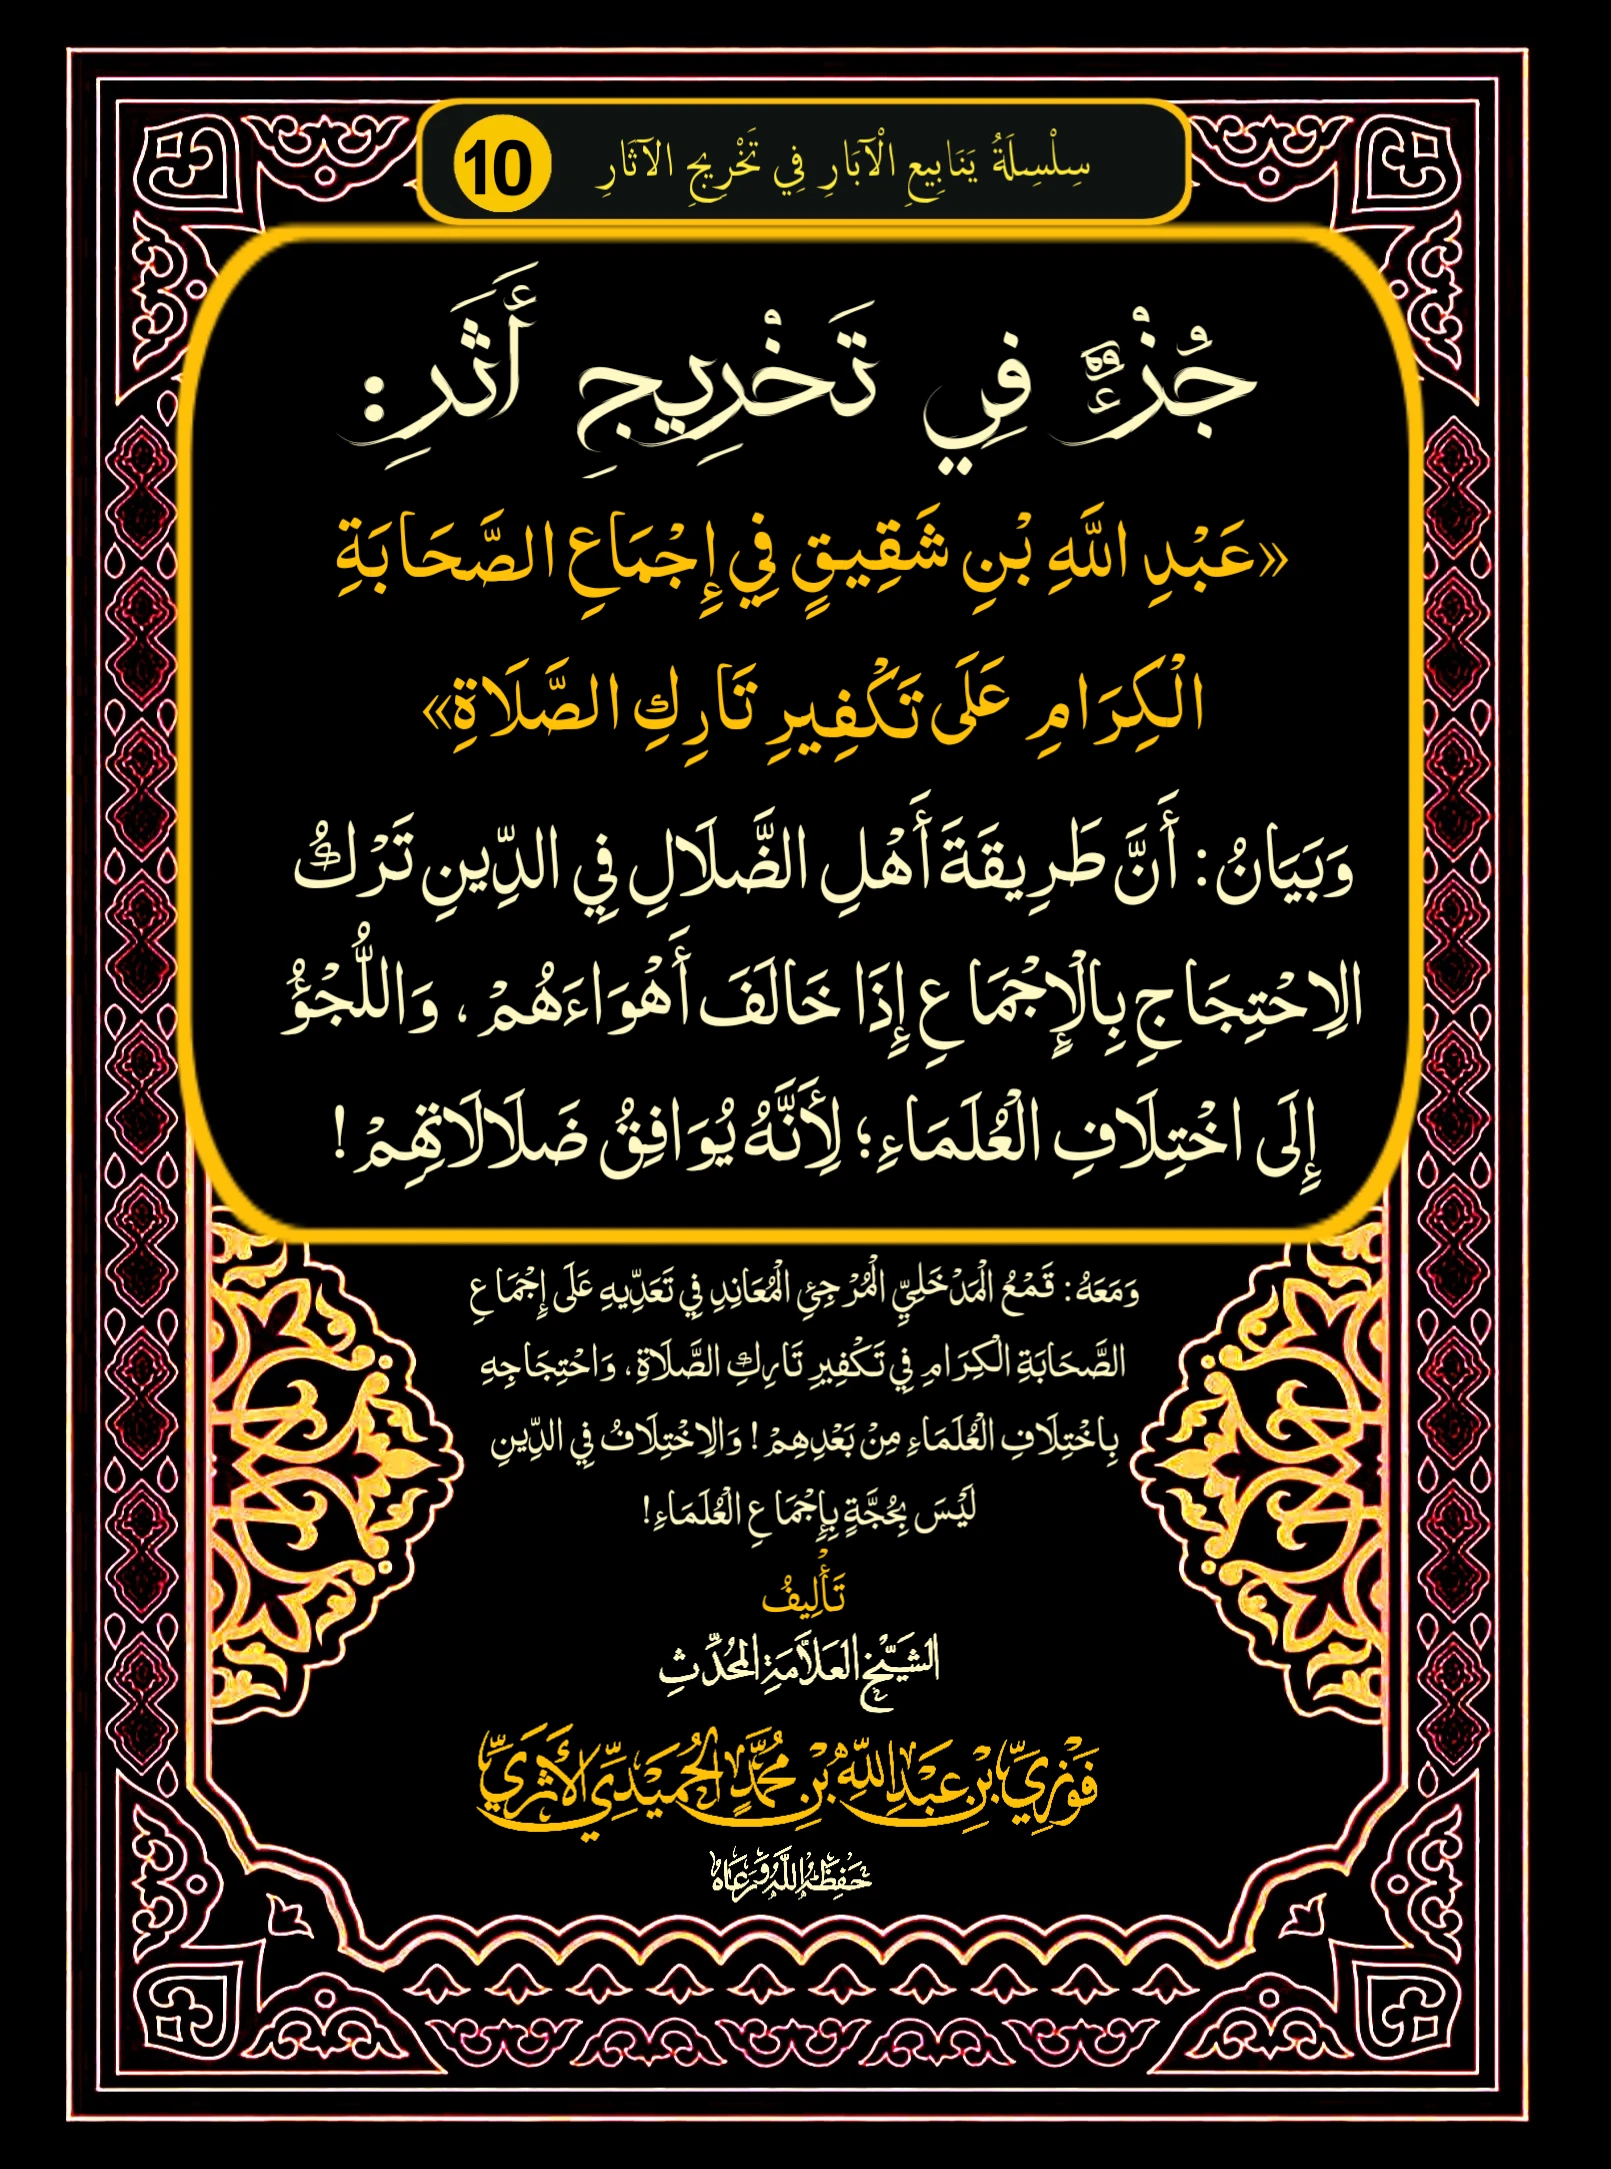 سِلْسِلَةُ يَنَابِيعِ الْآبَارِ فِي تَخْرِيجِ الآثَارِ 10
جُزْءٌ فِي تَخْرِيجِ أَثَرِ:
«عَبْدِ اللَّهِ بْنِ شَقِيقٍ فِي إِجْمَاعِ الصَّحَابَةِ
الْكِرَامِ عَلَى تَكْفِيرِ تَارِكِ الصَّلَاةِ»
وَبَيَانُ: أَنَّ طَرِيقَةَ أَهْلِ الضَّلَالِ فِي الدِّينِ تَرْكُ
الِاحْتِجَاجِ بِالْإِجْمَاعِ إِذَا خَالَفَ أَهْوَاءَهُمْ، وَاللُّجُؤْ
إِلَى اخْتِلَافِ الْعُلَمَاءِ؛ لِأَنَّهُ يُوَافِقُ ضَلَالَاتِهِمْ!
وَمَعَهُ: قَمْعُ الْمَدْخَلِيِّ الْمُرْجِئِ الْمُعَانِدِ فِي تَعَدِّيهِ عَلَى إِجْمَاعِ
الصَّحَابَةِ الْكِرَامِ فِي تَكْفِيرِ تَارِكِ الصَّلَاةِ، وَاحْتِجَاجِهِ
بِاخْتِلَافِ الْعُلَمَاءِ مِنْ بَعْدِهِمْ! وَالِاخْتِلَافُ فِي الدِّينِ
لَيْسَ بِحُجَّةٍ بِإِجْمَاعِ الْعُلَمَاءِ!
تَأْلِيفُ
الشَّيْخِ الْعَلَّامَةِ الْمُحَدِّثِ
فَوْزِيِّ بْنِ عَبْدِ اللَّهِ بْنِ مُحَمَّدٍ الْحُمَيْدِيِّ الْأَثَرِيِّ
حَفِظَهُ اللَّهُ وَرَعَاهُ